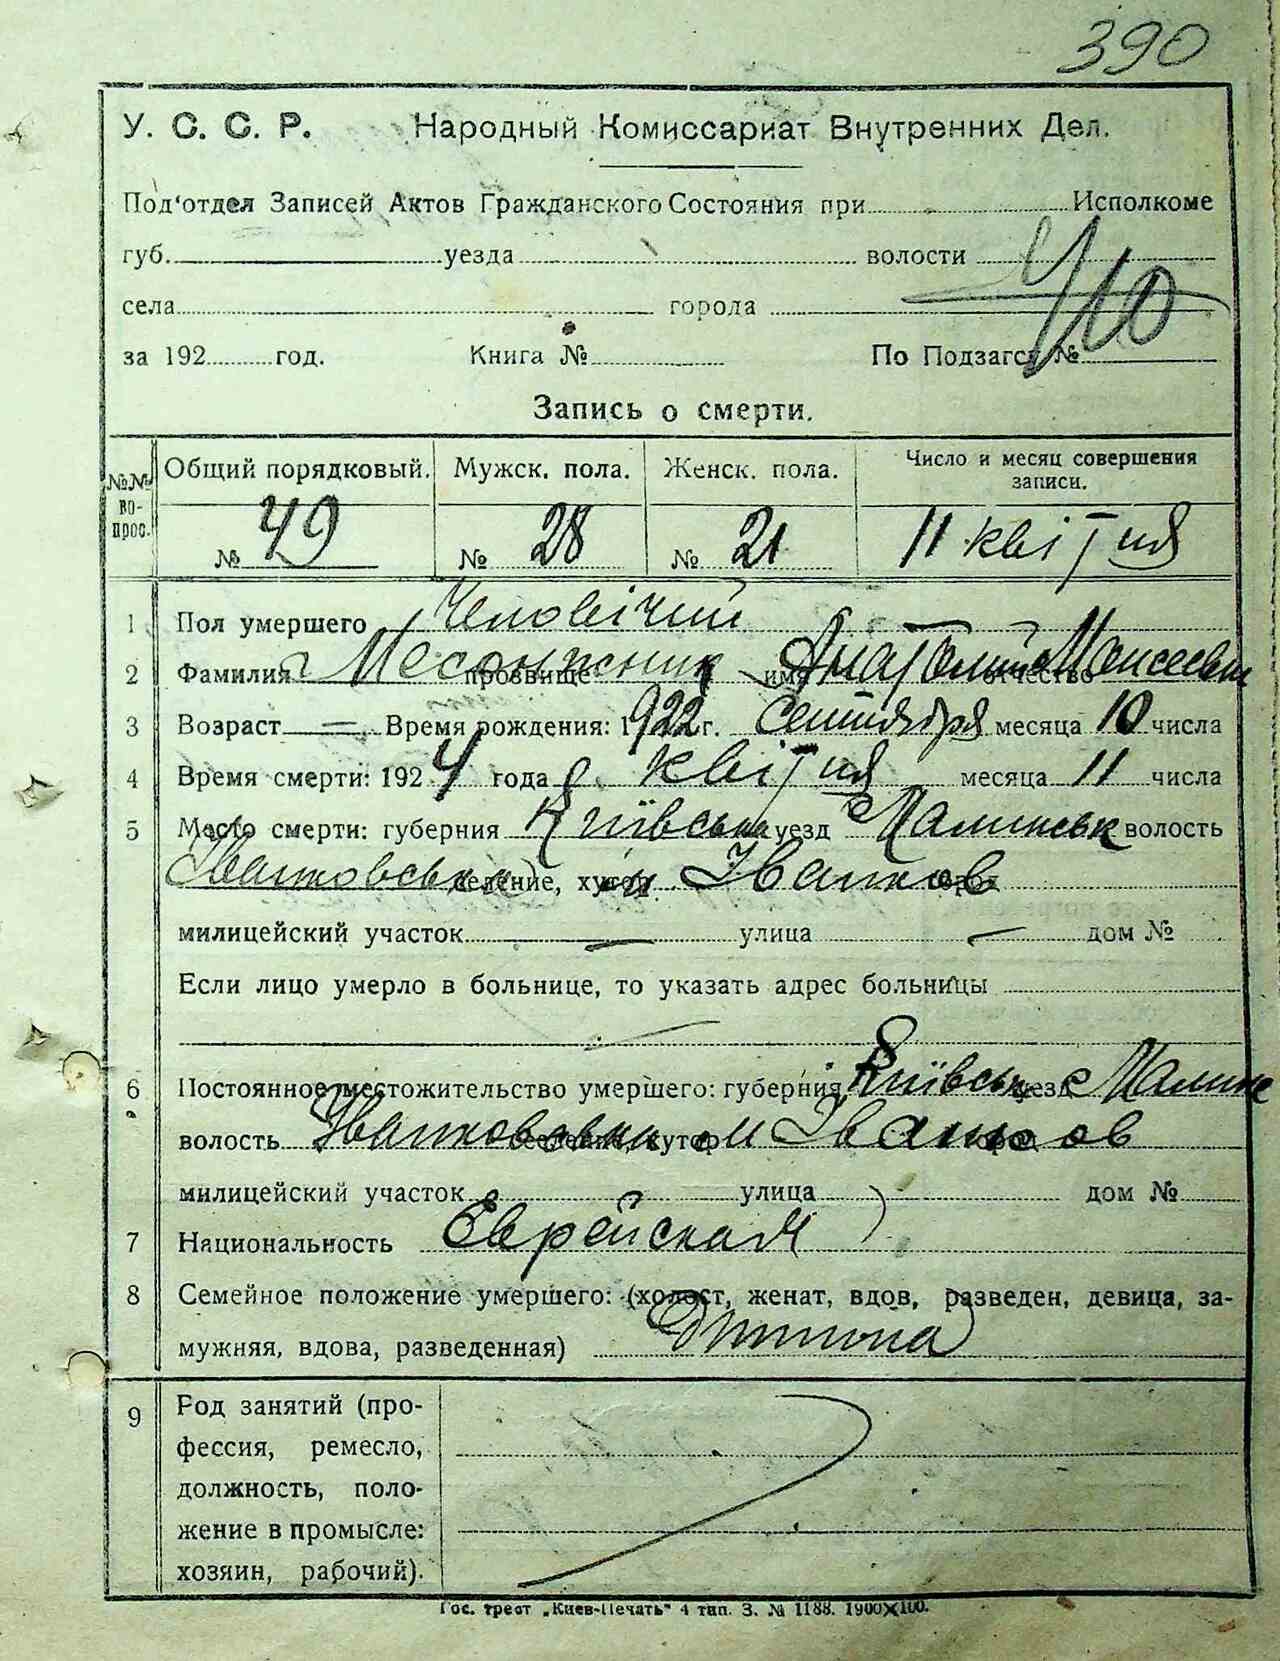 390
У. С. С. Р. Народный Комиссариат Внутренних Дел.
Под'отдел Записей Актов Гражданского Состояния при Исполкоме
губ. уезда волости
села города
за 192 год. Книга № По Подзагсу №
Запись о смерти.
№№ вопрос. Общий порядковый. Мужск. пола. Женск. пола. Число и месяц совершения записи.
№ 49 № 28 № 21 11 квітня
1 Пол умершего Человічий
2 Фамилия прозвище имя Анатолий отчество Моисеевич
3 Возраст — Время рождения: 1922 г. Сентября месяца 10 числа
4 Время смерти: 1924 года квітня месяца 11 числа
5 Место смерти: губерния Київська уезд Малинськ волость
Іванковська селение, хутор м. Іванков город
милицейский участок — улица — дом №
Если лицо умерло в больнице, то указать адрес больницы
6 Постоянное местожительство умершего: губерния Київськ уезд Малинс
волость Іванковська селение, хутор м Іванков город
милицейский участок улица дом №
7 Национальность Еврейская
8 Семейное положение умершего: (холост, женат, вдов, разведен, девица, за-
мужняя, вдова, разведенная) Дитина
9 Род занятий (про-
фессия, ремесло,
должность, поло-
жение в промысле:
хозяин, рабочий).
Гос. трест „Киев-Печать" 4 тип. З. № 1188. 1900×100.